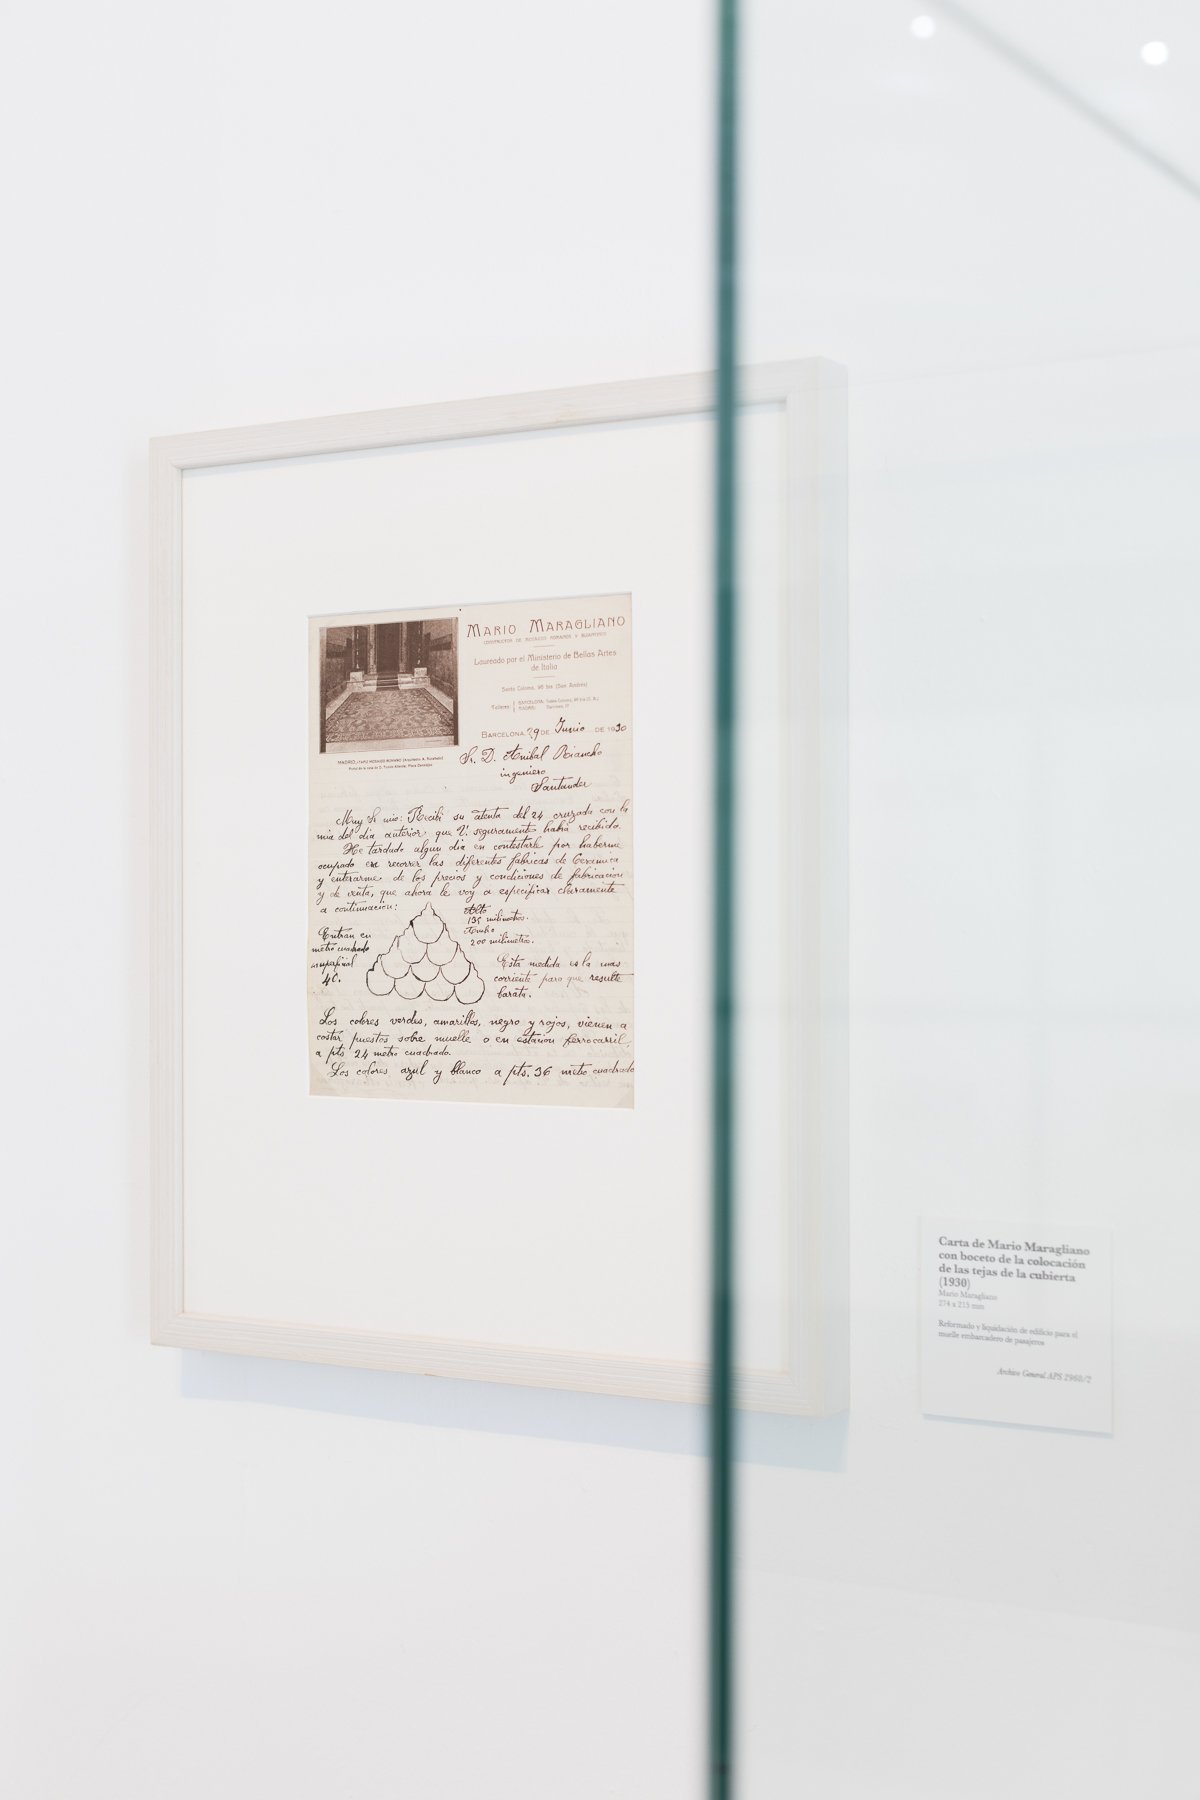 MARIO MARAGLIANO
CONSTRUCTOR DE MOSAICOS ROMANOS Y BIZANTINOS
Laureado por el Ministerio de Bellas Artes
de Italia
Santa Coloma, 96 bis (San Andrés)
Talleres
BARCELONA:
MADRID:
BARCELONA, 29 DE Junio DE 1930
MADRID.
Sr. D. Anibal Riancho
ingeniero
Santander
Muy Sr mio: Recibi su atenta del 24 cruzada con la
mia del dia anterior que V. seguramente habrá recibido.
He tardado algun dia en contestarle por haberme
ocupado en recorrer las diferentes fabricas de Ceramica
y enterarme de los precios y condiciones de fabricacion
y de venta, que ahora le voy a especificar claramente
a continuacion:
Alto
135 milimetros.
Ancho
200 milimetros.
Entran en
metro cuadrado
superficial
40.
Esta medida es la mas
corriente para que resulte
barata.
Los colores verdes, amarillos, negro y rojos, vienen a
costar puestos sobre muelle o en estacion ferrocarril,
a pts 24 metro cuadrado.
Los colores azul y blanco a pts. 36 metro cuadrado
Carta de Mario Maragliano
con boceto de la colocación
de las tejas de la cubierta
(1930)
Mario Maragliano
274 x 215 mm
Reformado y liquidación de edificio para el
muelle embarcadero de pasajeros
Archivo General APS 2960/2